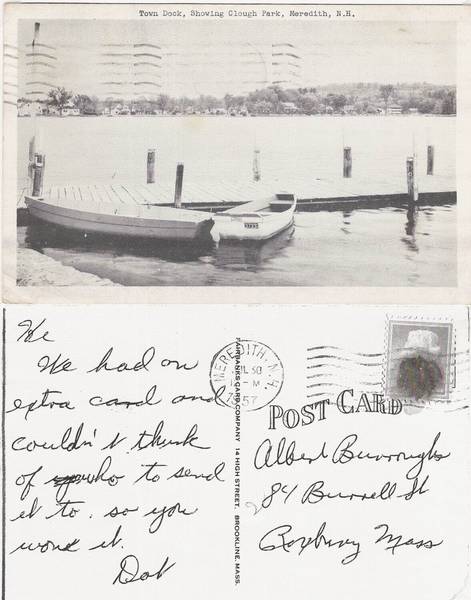 Town Dock, Showing Clough Park, Meredith, N.H.
We
We had an
extra card and
couldn't think
of who to send
it to. so you
won it.
Dot
FAIRBANKS CARD COMPANY 14 HIGH STREET, BROOKLINE, MASS.
MEREDITH, N.H.
JUL 30
M
1957
POST CARD
Albert Burroughs
84 Burrell St
Roxbury Mass